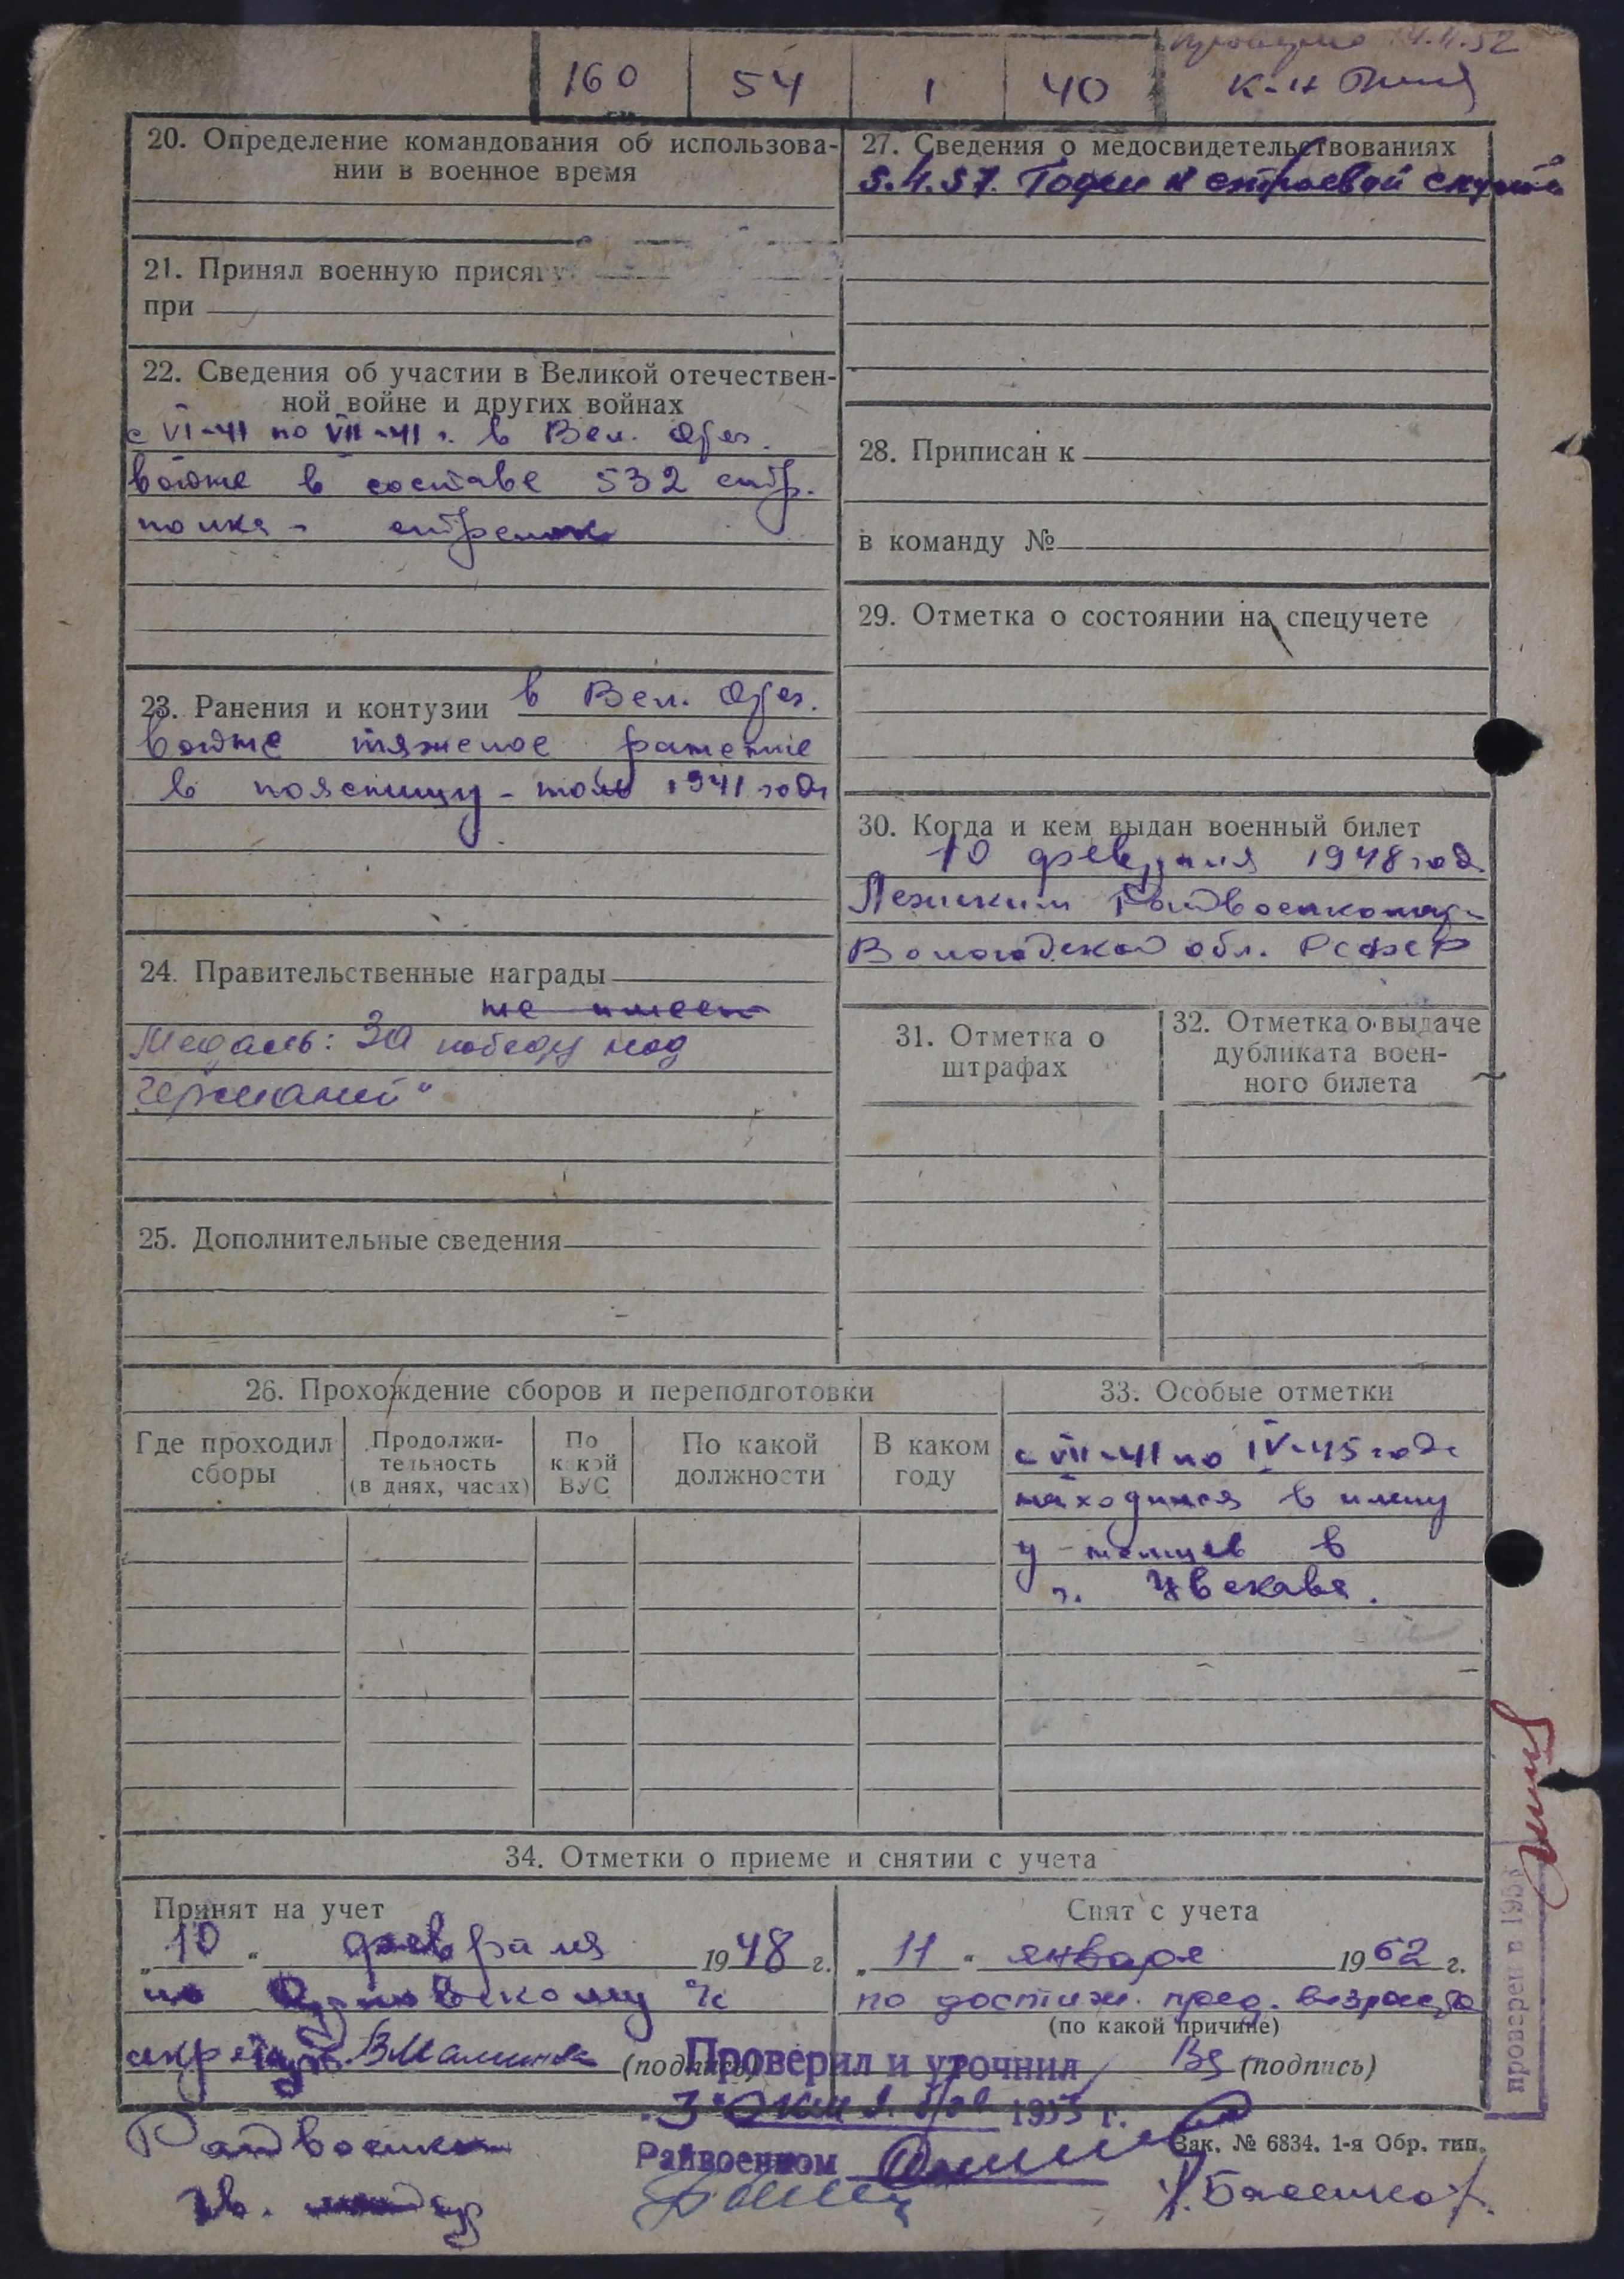 160 54 1 40
4.11.52
к-н
20. Определение командования об использова-
нии в военное время
21. Принял военную присягу
при
22. Сведения об участии в Великой отечествен-
ной войне и других войнах
с VI-41 по VII-41 г. в Вел. Отеч.
войне в составе 532 стр.
полка - стрелок
23. Ранения и контузии в Вел. Отеч.
войне тяжелое ранение
в поясницу - июль 1941 года
24. Правительственные награды
не имеет
Медаль: За победу над
Германией"
25. Дополнительные сведения
27. Сведения о медосвидетельствованиях
5.4.57. Годен к строевой службе
28. Приписан к
в команду №
29. Отметка о состоянии на спецучете
30. Когда и кем выдан военный билет
10 февраля 1948 год
Райвоенкомат
Вологодской обл. РСФСР
31. Отметка о
штрафах
32. Отметка о выдаче
дубликата воен-
ного билета
26. Прохождение сборов и переподготовки
Где проходил
сборы
Продолжи-
тельность
(в днях, часах)
По
какой
ВУС
По какой
должности
В каком
году
33. Особые отметки
с VII-41 по IV-45 года
находился в плену
у немцев в
г. Цвекава.
34. Отметки о приеме и снятии с учета
Принят на учет
„10" февраля 1948 г.
по
(подпись)
Снят с учета
„11" января 1962 г.
по достиж. пред. возраста
(по какой причине)
(подпись)
Проверил и уточнил
1953 г.
Райвоенком
Зак. № 6834. 1-я Обр. тип.
проверен в 195